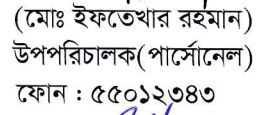 (মোঃ ইফতেখার রহমান)
উপপরিচালক(পার্সোনেল)
ফোন : ৫৫০১২৩৪৩